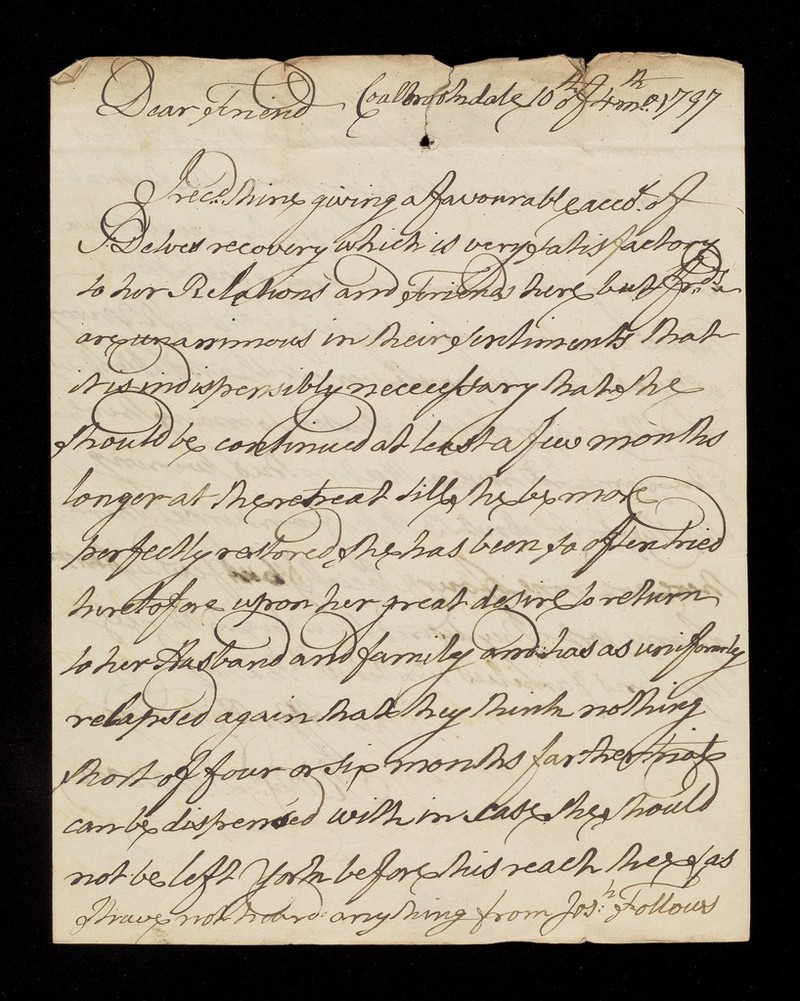 Dear Friend Coalbrookdale 10th of 4th mo. 1797
I recd. thine giving a favourable acco.t of
Delves recovery which is very satisfactory
to her Relations and Friends here but
are unanimous in their sentiments that
it is indispensibly necessary that she
should be continued at least a few months
longer at the retreat till she be more
perfectly restored, she has been so often tried
heretofore upon her great desire to return
to her Husband and family and has as uniformly
relapsed again that they think nothing
short of four or six months farther trial
can be dispensed with in case she should
not be left York before this reach thee & as
I have not heard any thing from Jos.h Follows